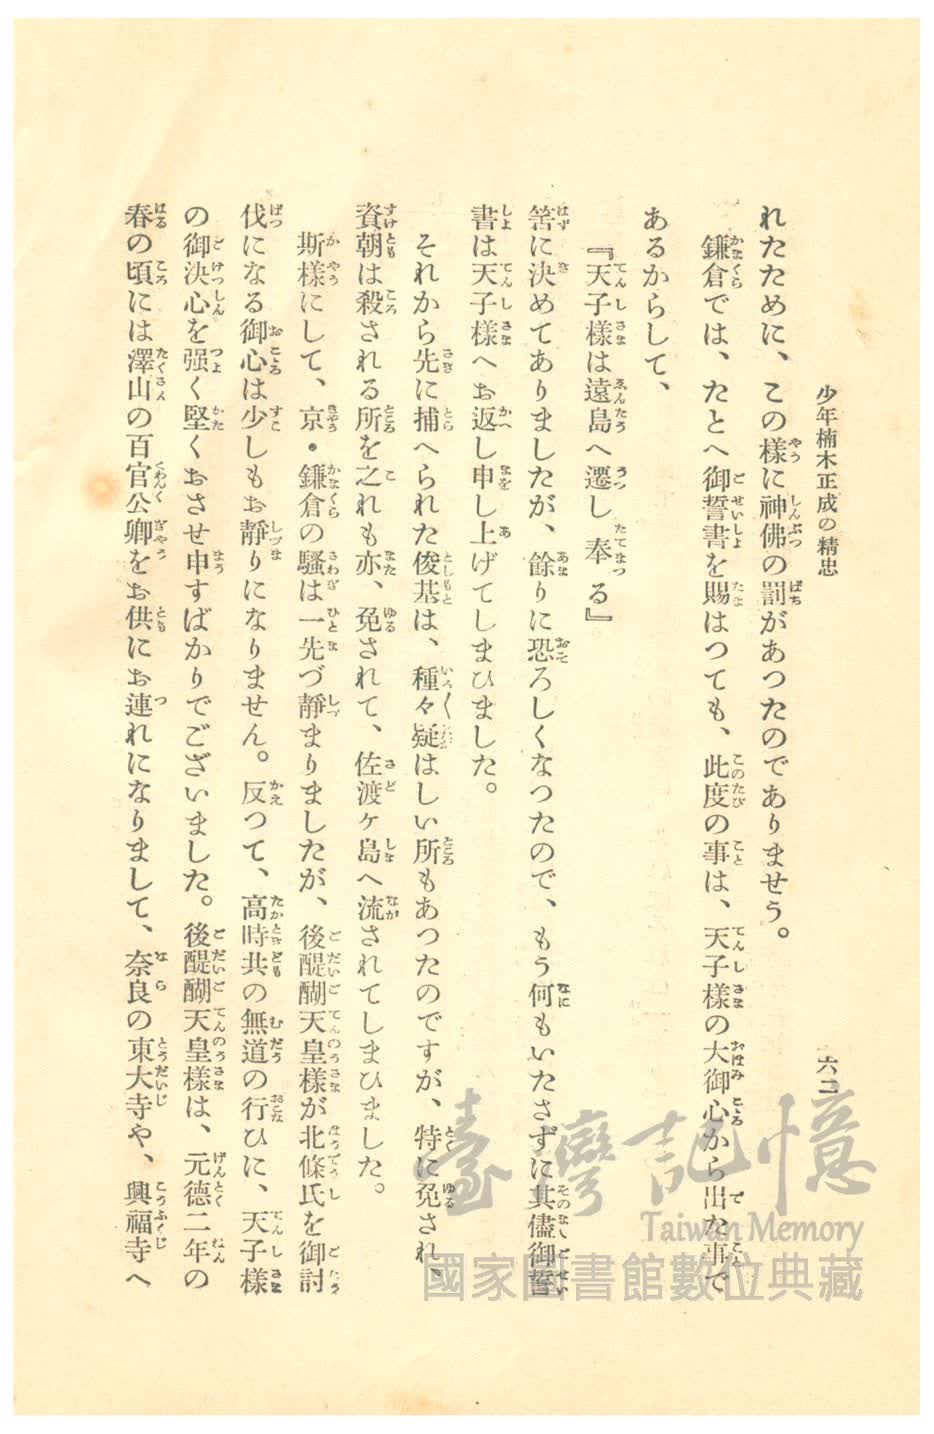 少年楠木正成の精忠
六二
れたために、この様に神佛の罰があつたのでありませう。
鎌倉では、たとへ御誓書を賜はつても、此度の事は、天子様の大御心から出た事で
あるからして、
『天子様は遠島へ遷し奉る』
筈に決めてありましたが、餘りに恐ろしくなつたので、もう何もいたさずに其儘御誓
書は天子様へお返し申し上げてしまひました。
それから先に捕へられた俊基は、種々疑はしい所もあつたのですが、特に免され、
資朝は殺される所を之れも亦、免されて、佐渡ヶ島へ流されてしまひました。
斯様にして、京・鎌倉の騒は一先づ靜まりましたが、後醍醐天皇様が北條氏を御討
伐になる御心は少しもお靜りになりません。反つて、高時共の無道の行ひに、天子様
の御決心を强く堅くおさせ申すばかりでございました。後醍醐天皇様は、元德二年の
春の頃には澤山の百官公卿をお供にお連れになりまして、奈良の東大寺や、興福寺へ
臺灣記憶
Taiwan Memory
國家圖書館數位典藏